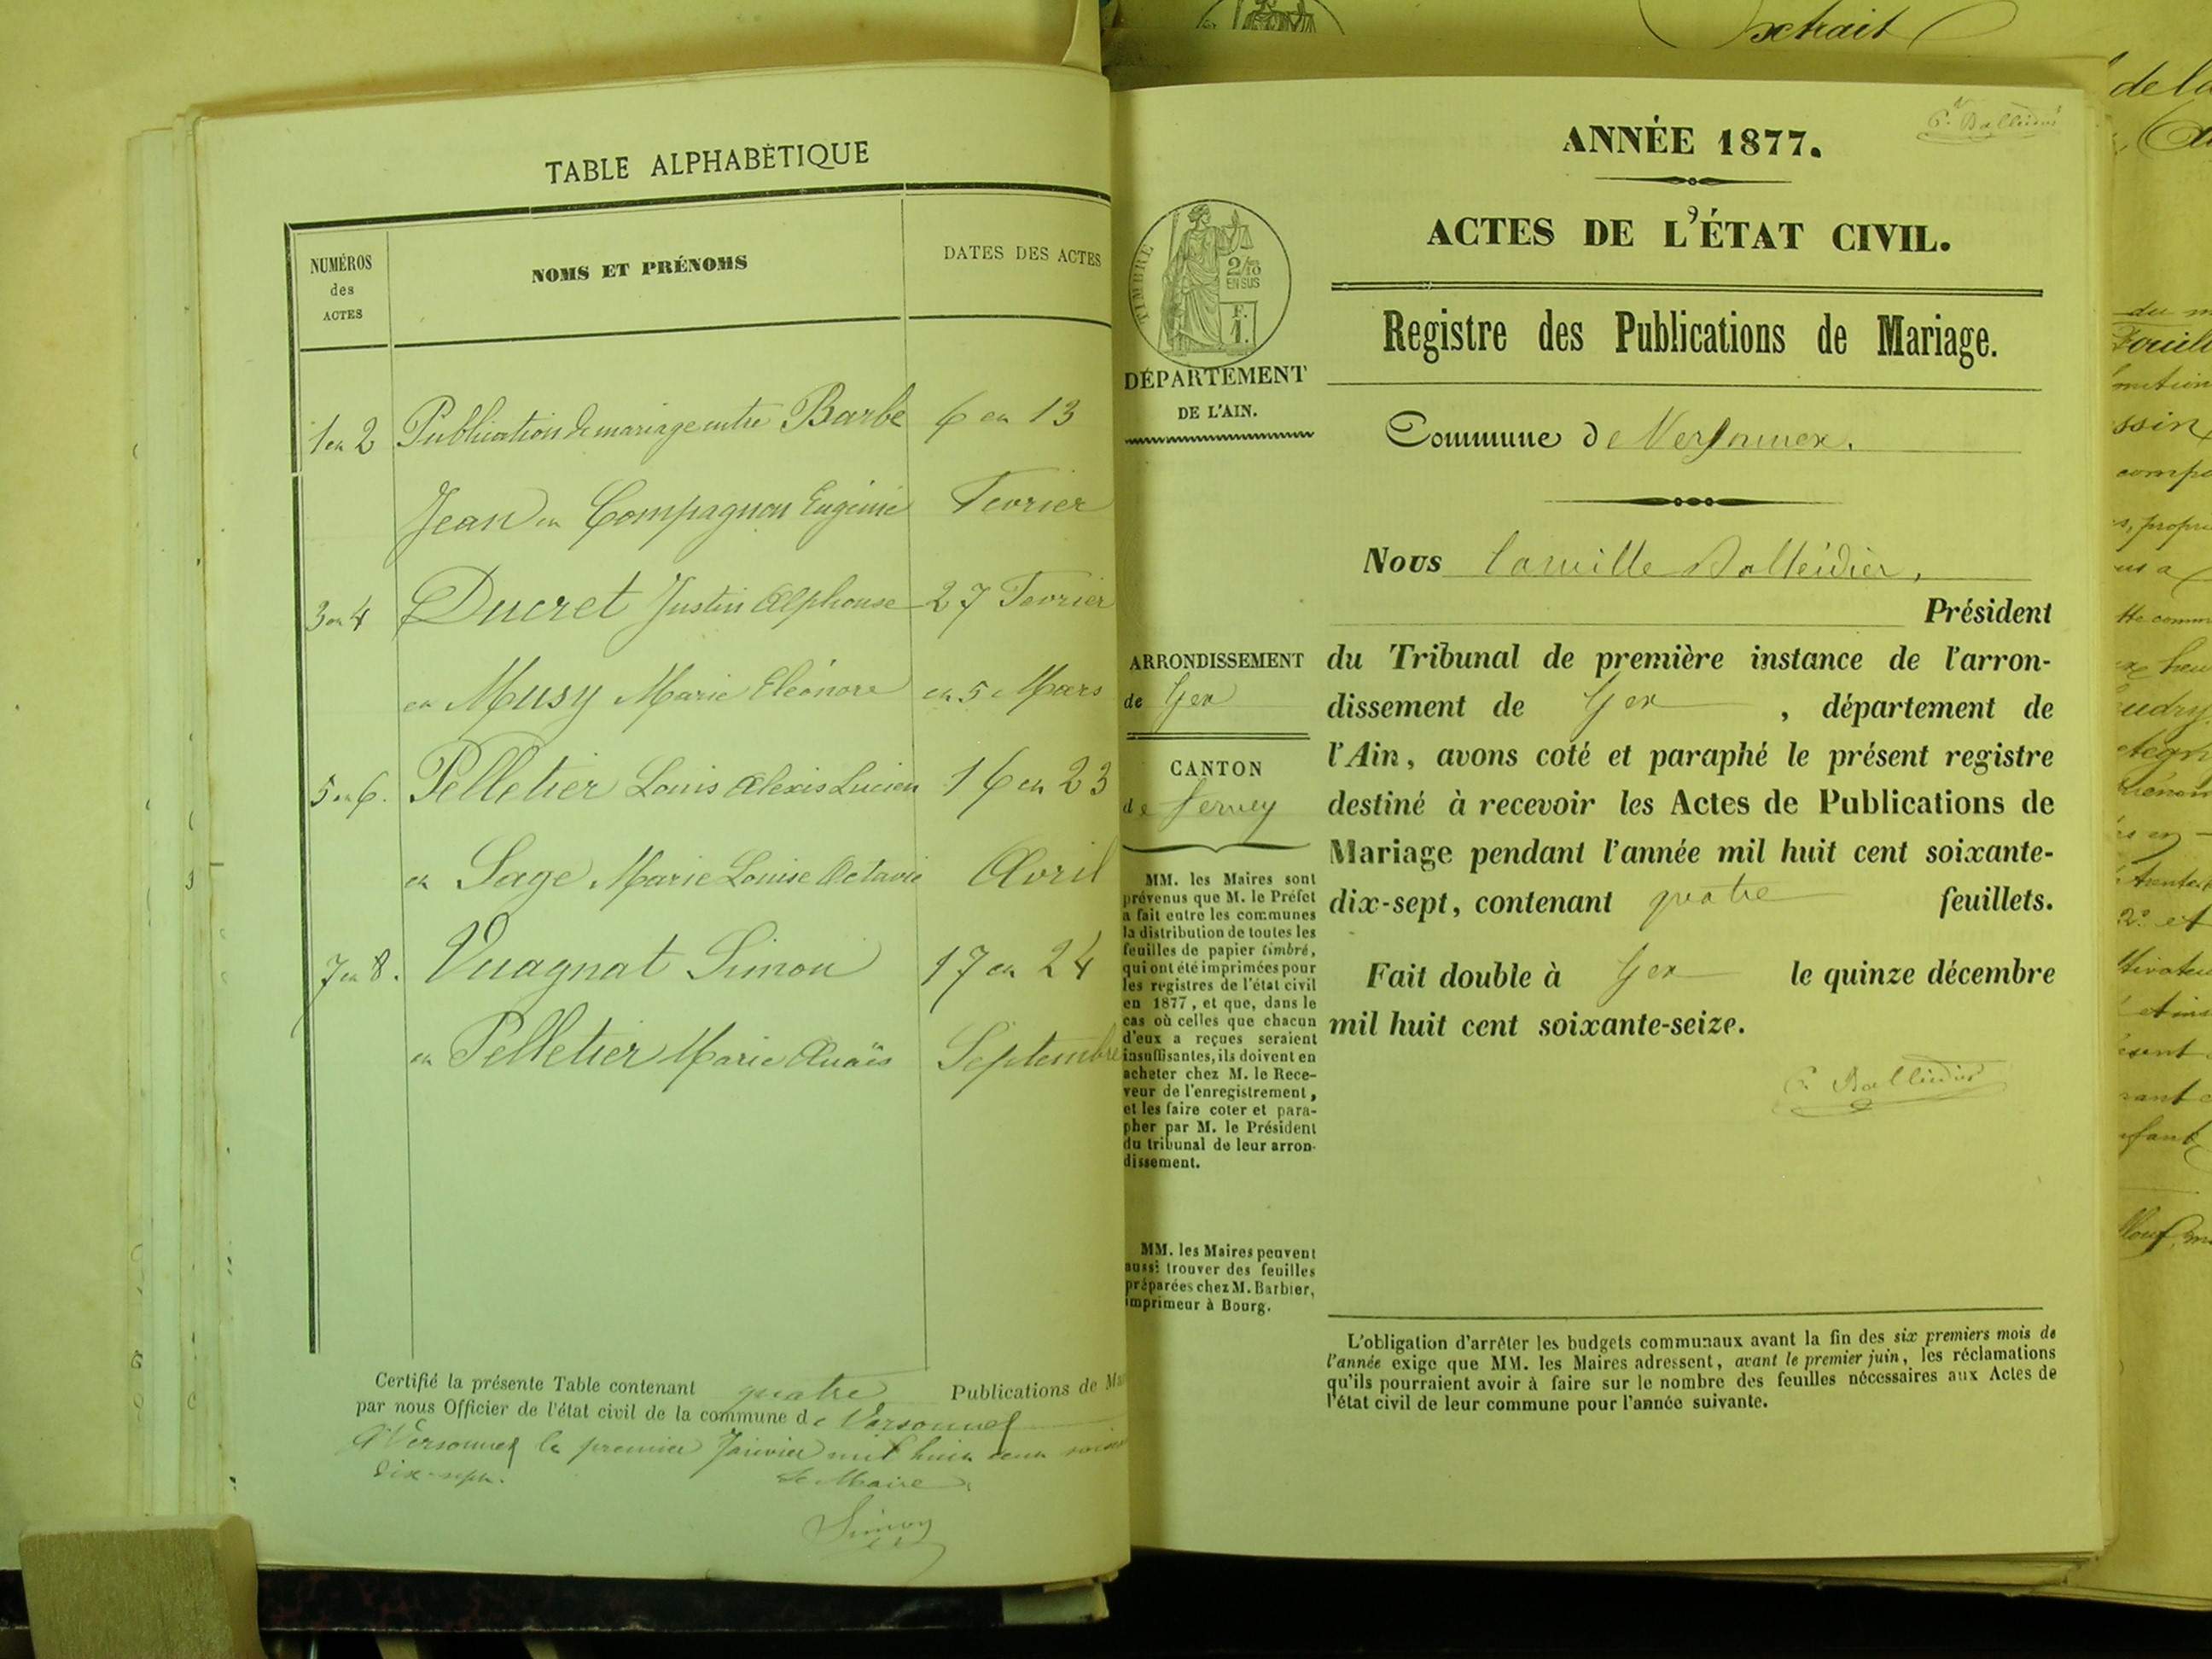 TABLE ALPHABÉTIQUE
NUMÉROS
des
ACTES
NOMS ET PRÉNOMS
DATES DES ACTES
1 et 2 Publication de mariage entre Barbe 6 et 13
Jean et Compagnon Eugénie Fevrier
3 et 4 Ducret Justin Alphonse 27 Fevrier
et Musy Marie Eléonore et 5 Mars
5 et 6. Pelletier Louis Alexis Lucien 16 et 23
et Sage Marie Louise Octavie Avril
7 et 8. Vuagnat Simon 17 et 24
et Pelletier Marie Anaïs Septembre
Certifié la présente Table contenant quatre Publications de
par nous Officier de l'état civil de la commune de Versonnex
A Versonnex le premier Janvier mil huit cent
dix-sept.
Le Maire
extrait
de la
ANNÉE 1877.
ACTES DE L'ÉTAT CIVIL.
Registre des Publications de Mariage.
TIMBRE
2/10
EN SUS
F.
1.
DÉPARTEMENT
DE L'AIN.
Commune de Versonnex.
Nous Camille Balleidier,
Président
du Tribunal de première instance de l'arron-
dissement de Gex, département de
l'Ain, avons coté et paraphé le présent registre
destiné à recevoir les Actes de Publications de
Mariage pendant l'année mil huit cent soixante-
dix-sept, contenant quatre feuillets.
Fait double à Gex le quinze décembre
mil huit cent soixante-seize.
C. Balleidier
ARRONDISSEMENT
de Gex
CANTON
de Ferney
MM. les Maires sont
prévenus que M. le Préfet
a fait entre les communes
la distribution de toutes les
feuilles de papier timbré,
qui ont été imprimées pour
les registres de l'état civil
en 1877, et que, dans le
cas où celles que chacun
d'eux a reçues seraient
insuffisantes, ils doivent en
acheter chez M. le Rece-
veur de l'enregistrement,
et les faire coter et para-
pher par M. le Président
du tribunal de leur arron-
dissement.
MM. les Maires peuvent
aussi trouver des feuilles
préparées chez M. Barbier,
imprimeur à Bourg.
L'obligation d'arrêter les budgets communaux avant la fin des six premiers mois de
l'année exige que MM. les Maires adressent, avant le premier juin, les réclamations
qu'ils pourraient avoir à faire sur le nombre des feuilles nécessaires aux Actes de
l'état civil de leur commune pour l'année suivante.